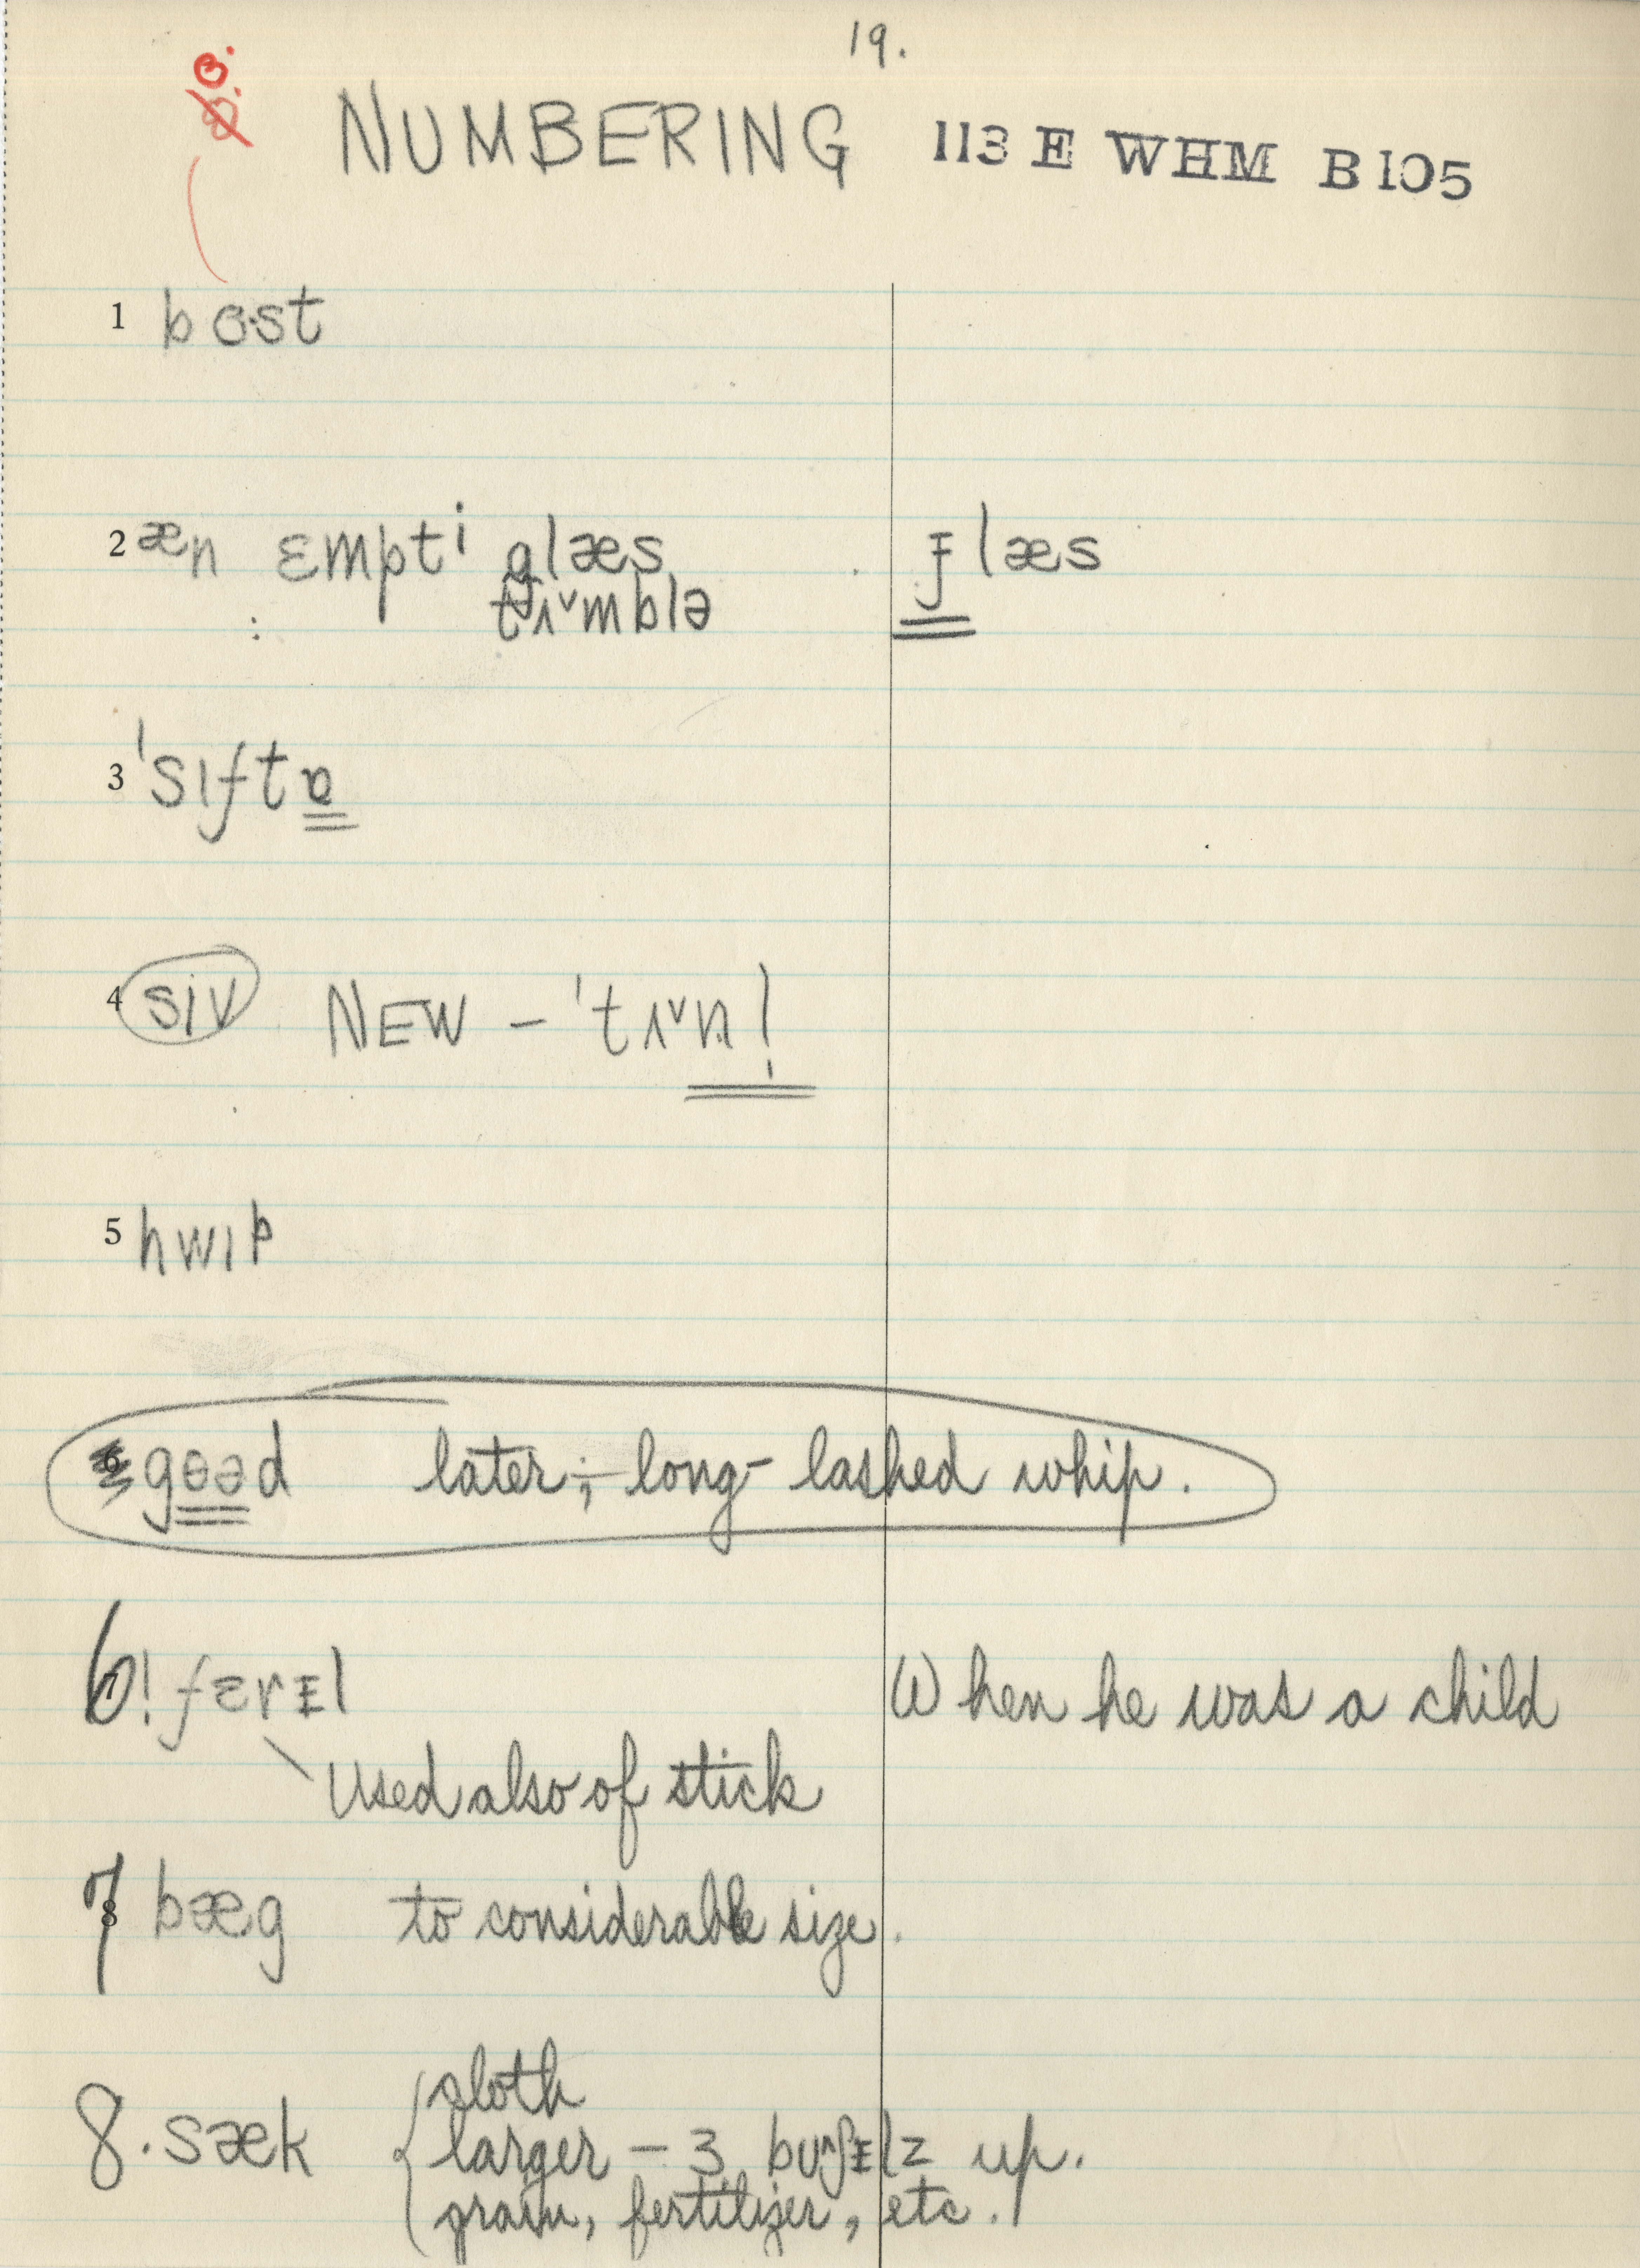 19.
NUMBERING 113 E WHM B105
1 bɵ·st
2 æn ɛmpti glæs ɟlæs
tʌ˅mblə
3 ˈsɪftɐ
4 siv NEW – ˈtʌ˅n!
5 hwɪp
gɵəd later; long-lashed whip.
6! færɪl When he was a child
Used also of stick
7 bæg to considerable size.
8. sæk cloth
larger – 3 bʊʃɪlz up.
grain, fertilizer, etc.